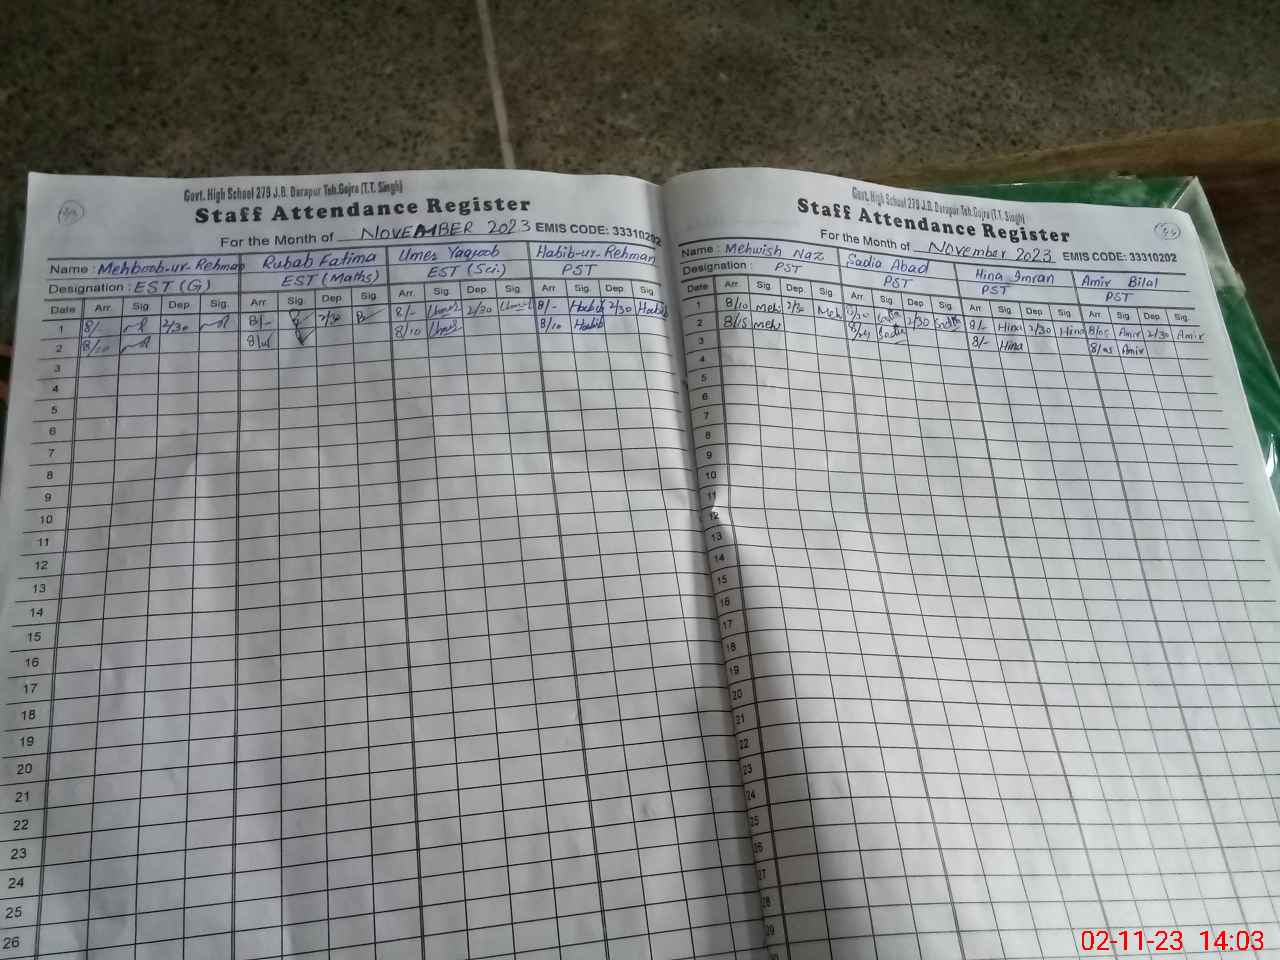 Govt. High School 279 J.B. Darapur Teh.Gojra (T.T. Singh)
Staff Attendance Register
For the Month of NOVEMBER 2023 EMIS CODE: 33310202
Name : Mehboob-ur-Rehman Rubab Fatima Umer Yaqoob Habib-ur-Rehman
Designation : EST (G) EST (Maths) EST (Sci.) PST
Date Arr. Sig. Dep. Sig. Arr. Sig. Dep. Sig. Arr. Sig. Dep. Sig. Arr. Sig. Dep. Sig.
1 8/- 2/30 8/- 2/30 8/- Umer 2/30 Umer 8/- Habib 2/30 Habib
2 8/10 8/10 Umer 8/10 Habib
3
4
5
6
7
8
9
10
11
12
13
14
15
16
17
18
19
20
21
22
23
24
25
26
Govt. High School 279 J.B. Darapur Teh.Gojra (T.T. Singh)
Staff Attendance Register
For the Month of November 2023 EMIS CODE: 33310202
Name : Mehwish Naz Sadia Abad Hina Imran Amir Bilal
Designation : PST PST PST PST
Date Arr. Sig. Dep. Sig. Arr. Sig. Dep. Sig. Arr. Sig. Dep. Sig. Arr. Sig. Dep. Sig.
1 8/10 Meh 2/30 Meh Sadia 2/30 Sadia 8/- Hina 2/30 Hina 8/05 Amir 2/30 Amir
2 8/15 meh Sadia 8/- Hina 8/05 Amir
3
4
5
6
7
8
9
10
11
12
13
14
15
16
17
18
19
20
21
22
23
24
25
26
27
28
29
02-11-23 14:03